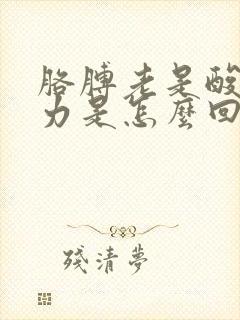 胳膊老是酸
力是怎麼回
殘清夢